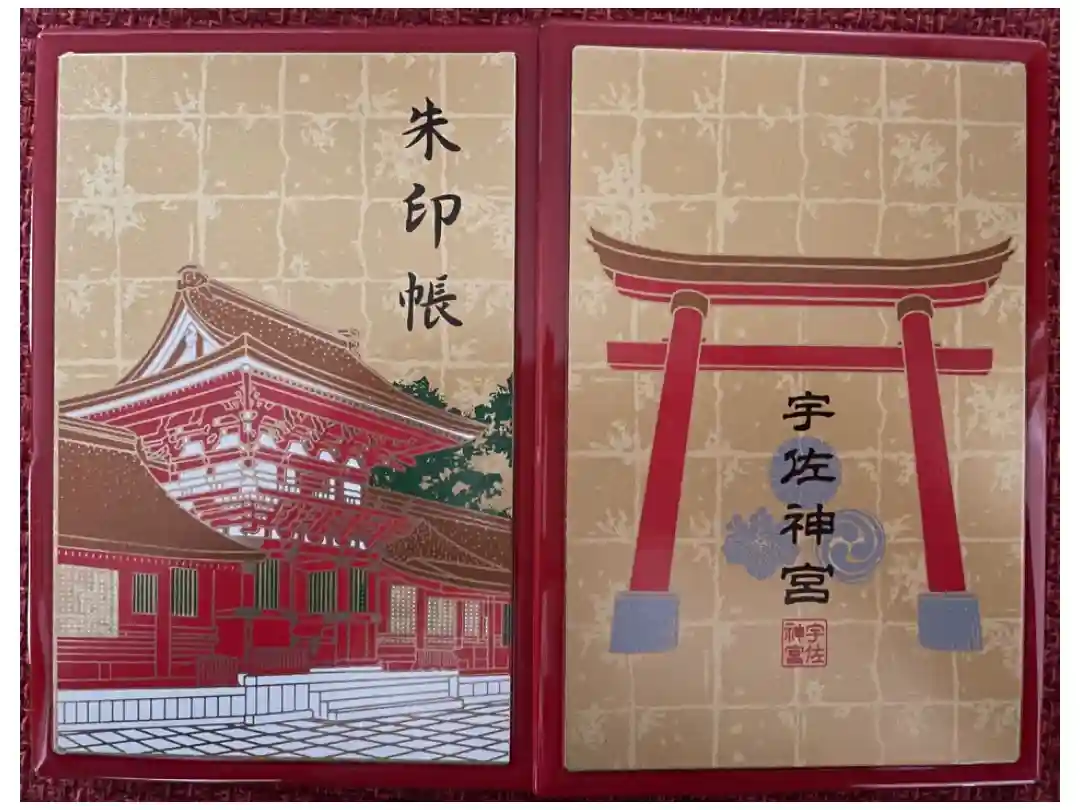 朱印帳
宇佐神宮
宇佐
神宮